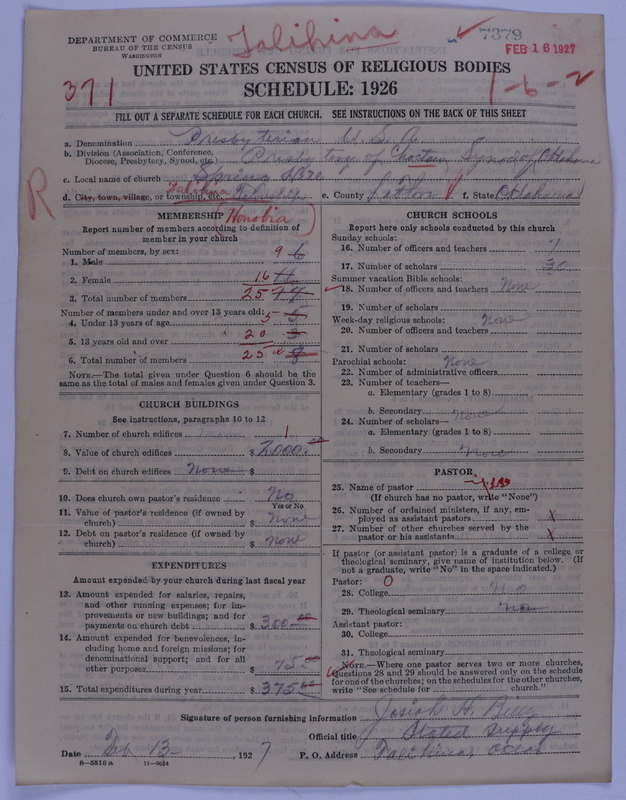 DEPARTMENT OF COMMERCE
BUREAU OF THE CENSUS
WASHINGTON
Talihina
7379
FEB 16 1927
371
UNITED STATES CENSUS OF RELIGIOUS BODIES
SCHEDULE: 1926
1-6-2
FILL OUT A SEPARATE SCHEDULE FOR EACH CHURCH. SEE INSTRUCTIONS ON THE BACK OF THIS SHEET
a. Denomination Presbyterian U. S. A.
b. Division (Association, Conference, Diocese, Presbytery, Synod, etc.) Presbytery of Choctaw Synod of Oklahoma
c. Local name of church
R
d. City, town, village, or township, etc. Talihina
e. County f. State Oklahoma
MEMBERSHIP Honobia
Report number of members according to definition of
member in your church
Number of members, by sex:
1. Male 9 6
2. Female 16
3. Total number of members 25
Number of members under and over 13 years old:
4. Under 13 years of age 5 5
5. 13 years old and over 20 3
6. Total number of members 25 8
NOTE.—The total given under Question 6 should be the
same as the total of males and females given under Question 3.
CHURCH BUILDINGS
See instructions, paragraphs 10 to 12
7. Number of church edifices 1
8. Value of church edifices $ 2000.00
9. Debt on church edifices None $
10. Does church own pastor's residence No
Yes or No
11. Value of pastor's residence (if owned by
church) $ None
12. Debt on pastor's residence (if owned by
church) $ none
EXPENDITURES
Amount expended by your church during last fiscal year
13. Amount expended for salaries, repairs,
and other running expenses; for im-
provements or new buildings; and for
payments on church debt $ 300.00
14. Amount expended for benevolences, in-
cluding home and foreign missions; for
denominational support; and for all
other purposes $ 75.00
15. Total expenditures during year $ 375.00
CHURCH SCHOOLS
Report here only schools conducted by this church
Sunday schools:
16. Number of officers and teachers 7
17. Number of scholars 30
Summer vacation Bible schools:
18. Number of officers and teachers None
19. Number of scholars
Week-day religious schools: None
20. Number of officers and teachers
21. Number of scholars
Parochial schools: None
22. Number of administrative officers
23. Number of teachers—
a. Elementary (grades 1 to 8)
b. Secondary None
24. Number of scholars—
a. Elementary (grades 1 to 8)
b. Secondary None
PASTOR
25. Name of pastor
(If church has no pastor, write "None")
26. Number of ordained ministers, if any, em-
ployed as assistant pastors x
27. Number of other churches served by the
pastor or his assistants x
If pastor (or assistant pastor) is a graduate of a college or
theological seminary, give name of institution below. (If
not a graduate, write "No" in the space indicated.)
Pastor: 0
28. College No
29. Theological seminary No
Assistant pastor:
30. College
31. Theological seminary
NOTE.—Where one pastor serves two or more churches,
Questions 28 and 29 should be answered only on the schedule
for one of the churches; on the schedules for the other churches,
write "See schedule for church."
Signature of person furnishing information Josiah H.
Official title Stated Supply
Date Feb 13, 1927
P. O. Address Talihina, Okla
8—5518a 11—9034